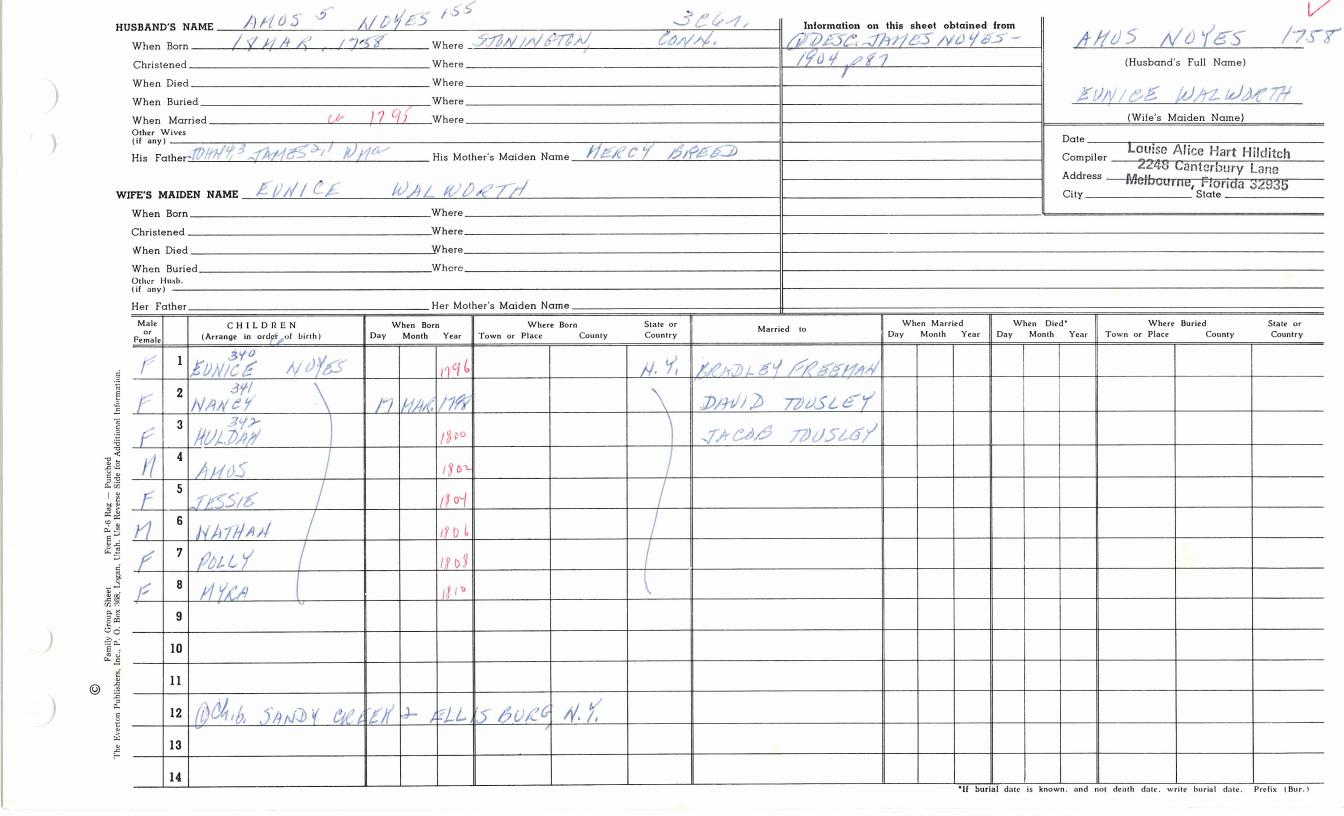 HUSBAND'S NAME AMOS 5 NOYES 155
When Born 18 MAR. 1758 Where STONINGTON, CONN.
Christened Where
When Died Where
When Buried Where
When Married 1795 Where
Other Wives
(if any)
His Father JOHN 4,3 JAMES 2,1 Wm His Mother's Maiden Name MERCY BREED
WIFE'S MAIDEN NAME EUNICE WALWORTH
When Born Where
Christened Where
When Died Where
When Buried Where
Other Husb.
(if any)
Her Father Her Mother's Maiden Name
Information on this sheet obtained from
① DESC. JAMES NOYES -
1904 p87
AMOS NOYES 1758
(Husband's Full Name)
EUNICE WALWORTH
(Wife's Maiden Name)
Date
Compiler Louise Alice Hart Hilditch
Address 2248 Canterbury Lane
Melbourne, Florida 32935
City State
Male or Female CHILDREN (Arrange in order of birth) When Born Day Month Year Where Born Town or Place County State or Country Married to When Married Day Month Year When Died* Day Month Year Where Buried Town or Place County State or Country
340
F 1 EUNICE NOYES 1796 N.Y. BRADLEY FREEMAN
341
F 2 NANCY 17 MAR. 1798 DAVID TOUSLEY
342
F 3 HULDAH 1800 JACOB TOUSLEY
M 4 AMOS 1802
F 5 JESSIE 1804
M 6 NATHAN 1806
F 7 POLLY 1808
F 8 MYRA 1810
9
10
11
12 ① Ch.b. SANDY CREEK & ELLISBURG N.Y.
13
14
*If burial date is known, and not death date, write burial date. Prefix (Bur.)
Family Group Sheet Form P-6 Rag — Punched
© The Everton Publishers, Inc., P. O. Box 368, Logan, Utah. Use Reverse Side for Additional Information.